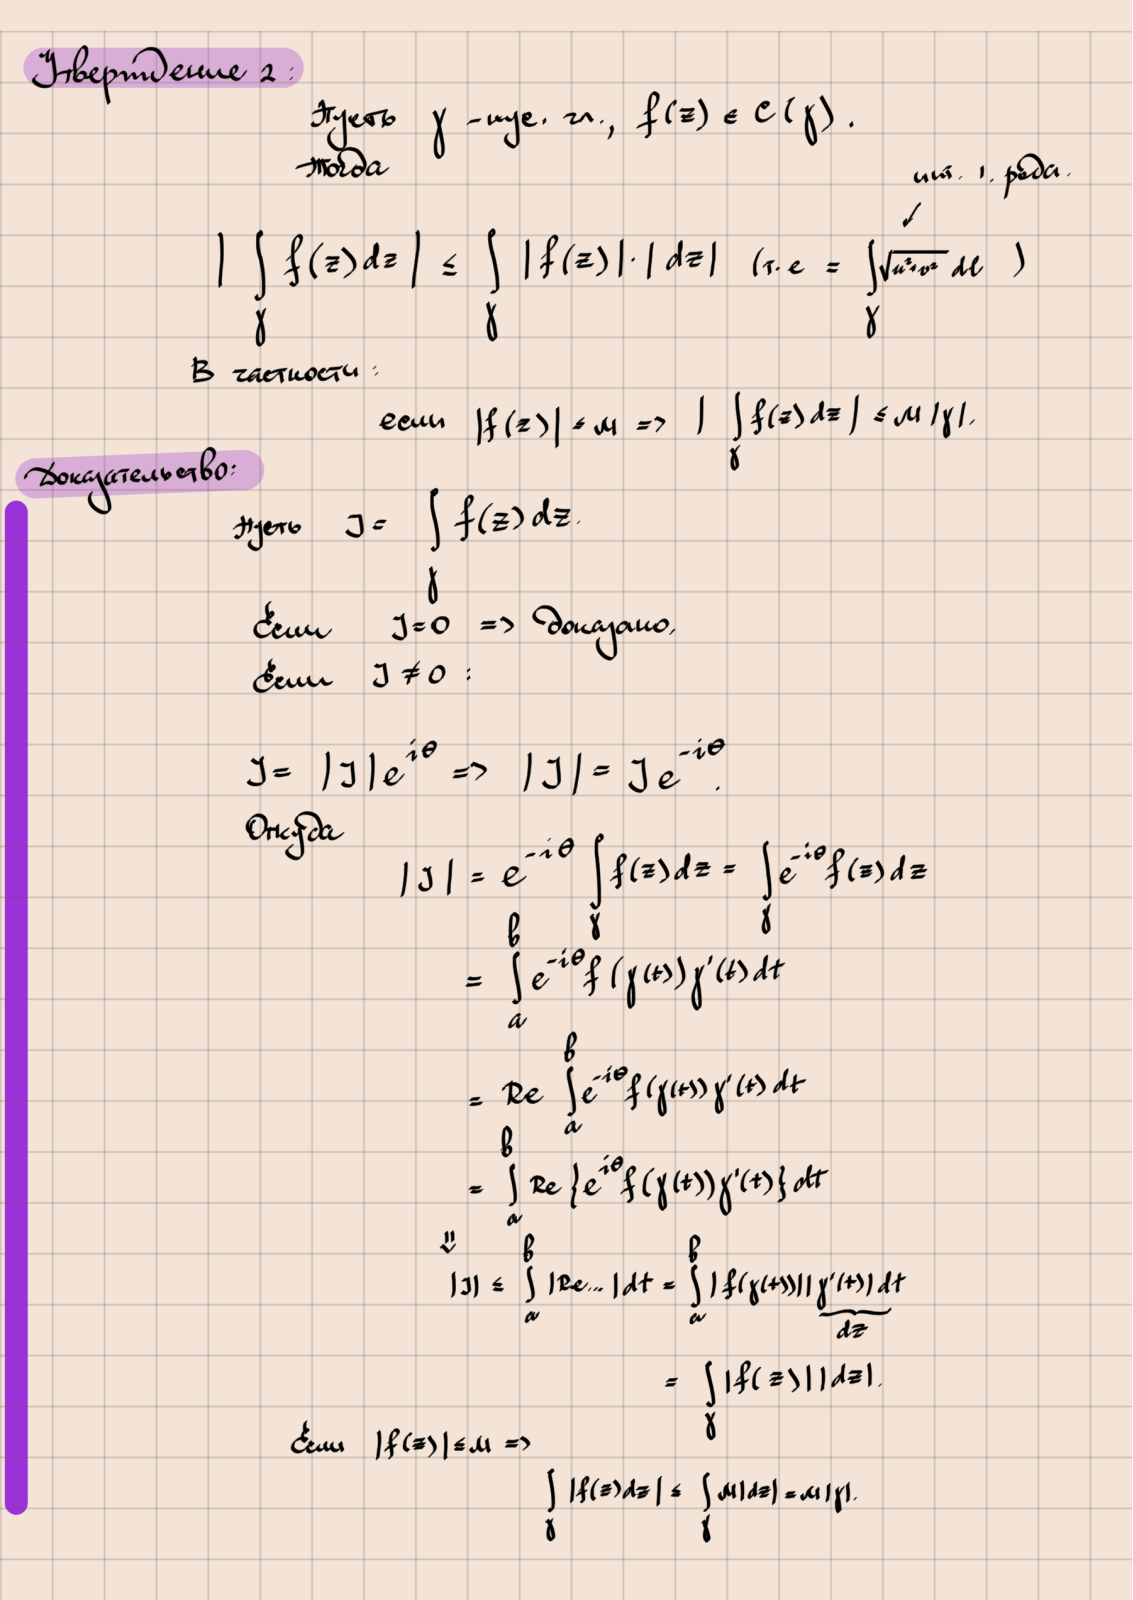 Утверждение 2:
Пусть γ - кус. гл., f(z) ∈ C(γ).
Тогда
инт. 1. рода.
| ∫_γ f(z)dz | ≤ ∫_γ |f(z)|·|dz| (т.е = ∫_γ √(u²+v²) dl )
В частности:
если |f(z)| ≤ M => | ∫_γ f(z)dz | ≤ M|γ|.
Доказательство:
Пусть J = ∫_γ f(z)dz.
Если J=0 => доказано.
Если J ≠ 0 :
J = |J|e^{iθ} => |J| = Je^{-iθ}.
Откуда
|J| = e^{-iθ} ∫_γ f(z)dz = ∫_γ e^{-iθ}f(z)dz
= ∫_a^b e^{-iθ}f(γ(t))γ'(t)dt
= Re ∫_a^b e^{-iθ}f(γ(t))γ'(t)dt
= ∫_a^b Re{e^{iθ}f(γ(t))γ'(t)}dt
⇓
|J| ≤ ∫_a^b |Re...|dt = ∫_a^b |f(γ(t))||γ'(t)|dt
dz
= ∫_γ |f(z)||dz|.
Если |f(z)| ≤ M =>
∫_γ |f(z)dz| ≤ ∫_γ M|dz| = M|γ|.